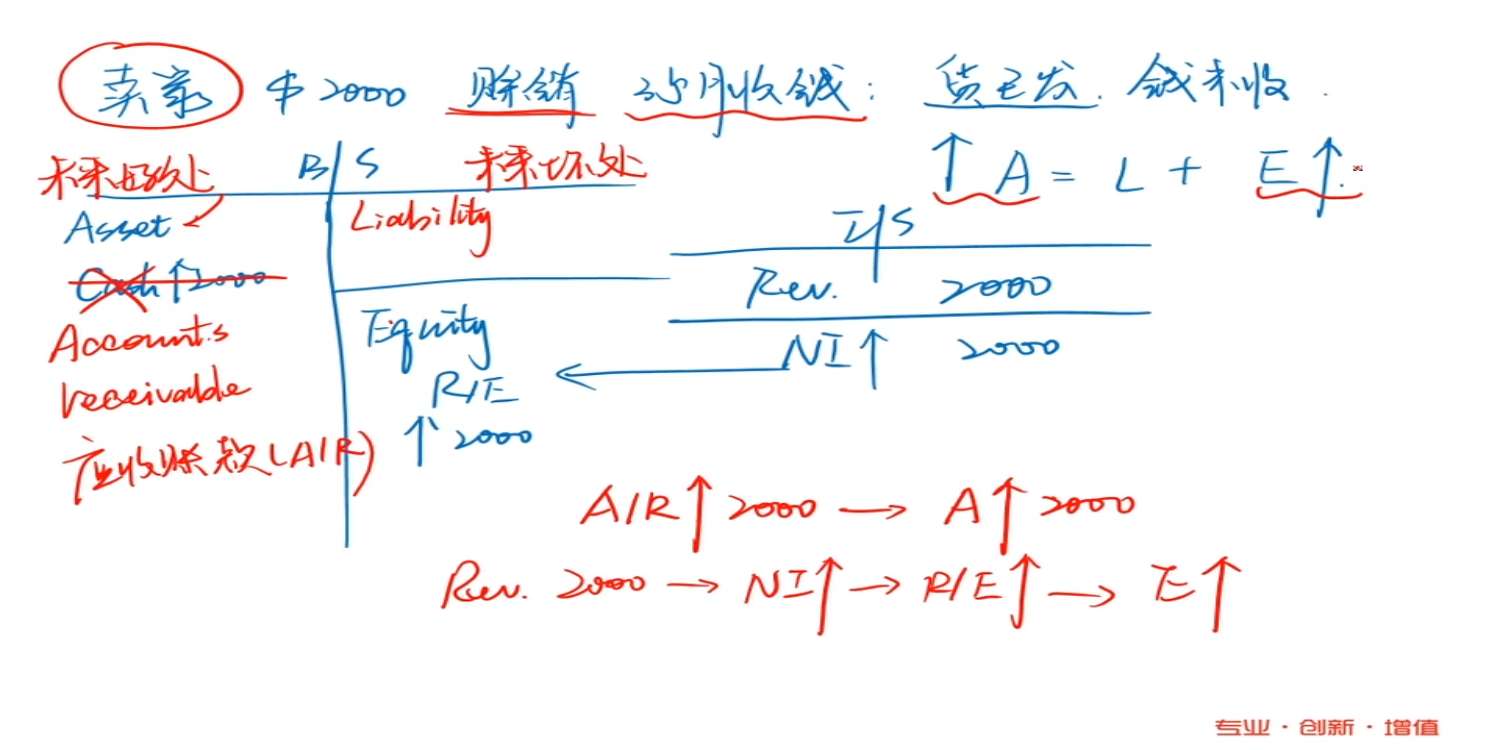 卖家 $2000 赊销 3个月收钱: 货已发. 钱未收.
未来好处 B/S 未来坏处
↑A = L + E↑
Asset Liability
I/S
Cash↑2000
Rev. 2000
Accounts Equity
NI↑ 2000
receivable R/E
↑2000
应收账款(A/R)
A/R↑2000 → A↑2000
Rev. 2000 → NI↑ → R/E↑ → E↑
专业·创新·增值